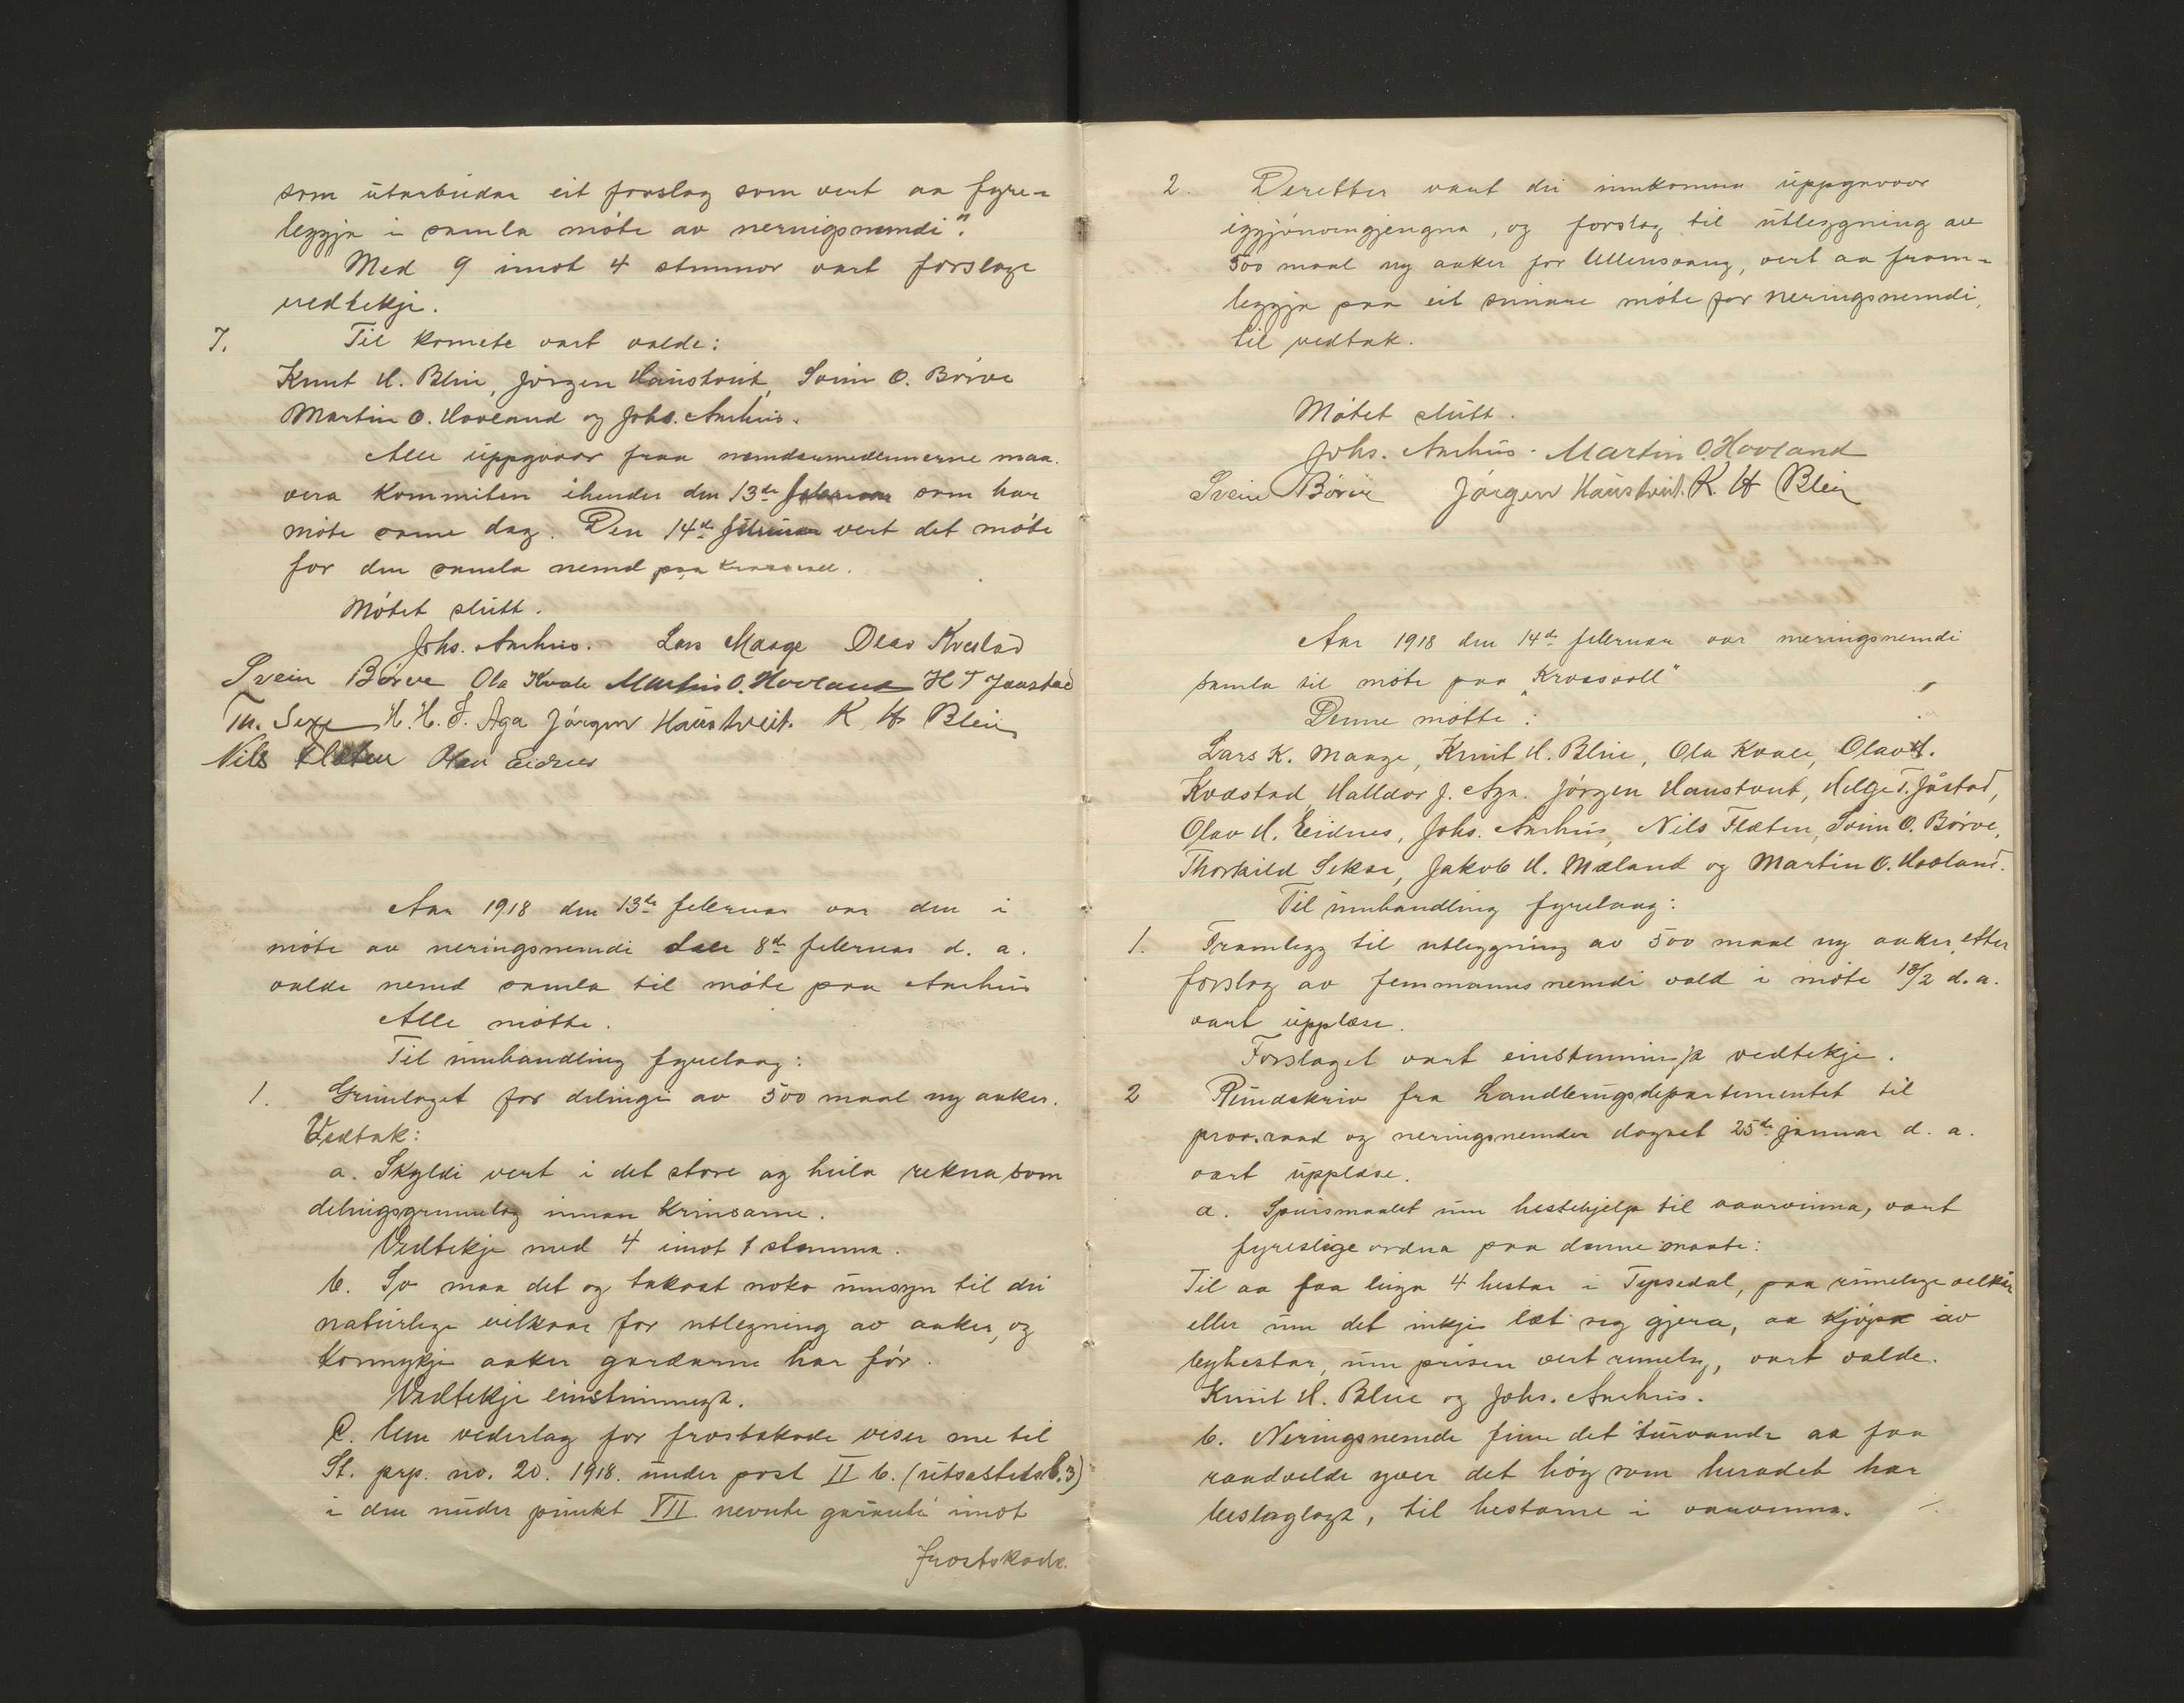 som utarbeidar eit forslag som vert aa fyre-
leggja i samla möte av neringsnemdi".
Med 9 imot 4 stemmor vart forslage
vedtekje.
7. Til komite vart valde:
Knut H. Bleie, Jörgen Haustveit, Svein O. Börve
Martin O. Hovland og Johs. Aarhus.
Alle uppgaavor fraa nemdsmedlemmerne maa
vera kommiteen ihender den 13de februar som har
möte same dag. Den 14de februar vert det möte
for den samla nemd paa Krossvoll.
Mötet slutt.
Johs. Aarhus. Lars Maage Olav Kvestad
Svein Börve Ola Kvale Martin O. Hovland H T Jaastad
Th. Sexe H. H. J. Aga Jörgen Haustveit. K H Bleie
Nils Flæten Olav Eidnes
Aar 1918 den 13de februar var den i
möte av neringsnemdi 8de februar d. a.
valde nemd samla til möte paa Aarhus
Alle mötte.
Til umhandling fyrelaag:
1. Grunlaget for delingi av 500 maal ny aaker.
Vedtak:
a. Skyldi vert i det store og heila rekna som
delingsgrunnlag innan krinsarne.
Vedtekje med 4 imot 1 stemma.
b. So maa det og takast noko umsyn til dei
naturlege vilkaar for utlegning av aaker, og
kormykje aaker gardarne har för.
Vedtekje einstemmegt.
C. Um vederlag for frostskade viser me til
St. prp. no. 20. 1918. under post II b. (utsastedn b. 3)
i den under punkt VII nevnte garanti imot
frostskade.
2. Deretter vart dei innkomna uppgaavor
igjönomgjengna, og forslag til utleggning av
500 maal ny aaker for Ullensvang, vert aa fram-
leggja paa eit seinare möte for neringsnemdi,
til vedtak.
Mötet slutt.
Johs. Aarhus. Martin O. Hovland
Svein Börve Jörgen Haustveit. K. H Bleie
Aar 1918 den 14de februar var neringsnemdi
samla til möte paa "Krossvoll"
Denne mötte:
Lars K. Maage, Knut H. Bleie, Ola Kvale, Olav H.
Kvæstad, Halldor J. Aga. Jörgen Haustveit, Helge T. Jåstad,
Olav H. Eidnes, Johs. Aarhus, Nils Flæten, Svein O. Börve,
Thorkild Sekse, Jakob H. Mæland og Martin O. Hovland.
Til umhandling fyrelaag:
1. Framlegg til utleggning av 500 maal ny aaker, etter
forslag av femmannsnemdi vald i möte 13/2 d. a.
vart upplese.
Forslaget vart einstemmigt vedtekje.
2 Rundskriv fra Landbrugsdepartementet til
prov.raad og neringsnemder dagset 25de januar d. a.
vart upplese.
a. Spursmaalet um hestehjelp til vaarvinna, vart
fyreslige ordna paa denne maate:
Til aa faa leiga 4 hestar i Tyssedal, paa rimelege vilkår
eller um det inkje læt seg gjera, aa kjöpa av
byhestar, um prisen vert rimeleg, vart valde.
Knut H. Bleie og Johs. Aarhus.
b. Neringsnemde finn det turvande aa faa
raadvelde yver det höy som heradet har
beslaglagt, til hestarne i vaarvinna. ⁒